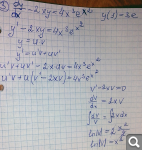 3) dy/dx - 2xy = 4x³eˣ² y(1) = 3e
y' - 2xy = 4x³eˣ²
y = uv
y' = u'v + uv'
u'v + uv' - 2x·uv = 4x³eˣ²
u'v + u(v' - 2xv) = 4x³eˣ²
v' - 2xv = 0
dv/dx = 2xv
∫dv/v = ∫2xdx
ln|v| = 2 x²/2
ln|v| = x²